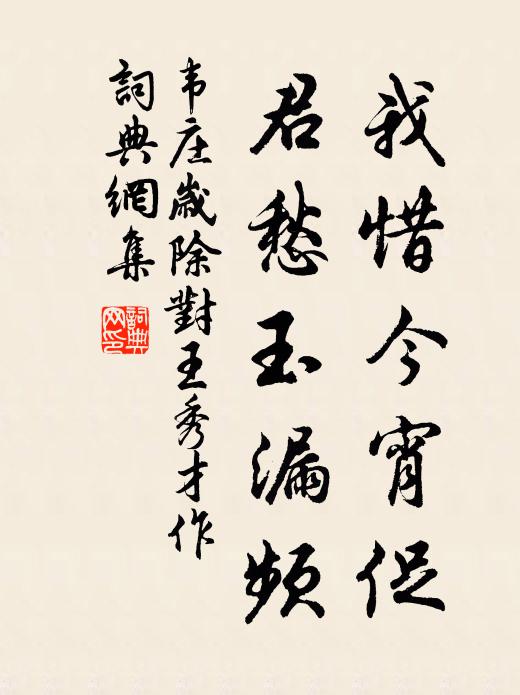 我惜今宵促
君愁玉漏频
韦庄歲除對王秀才作
詞典網集
詞典网印